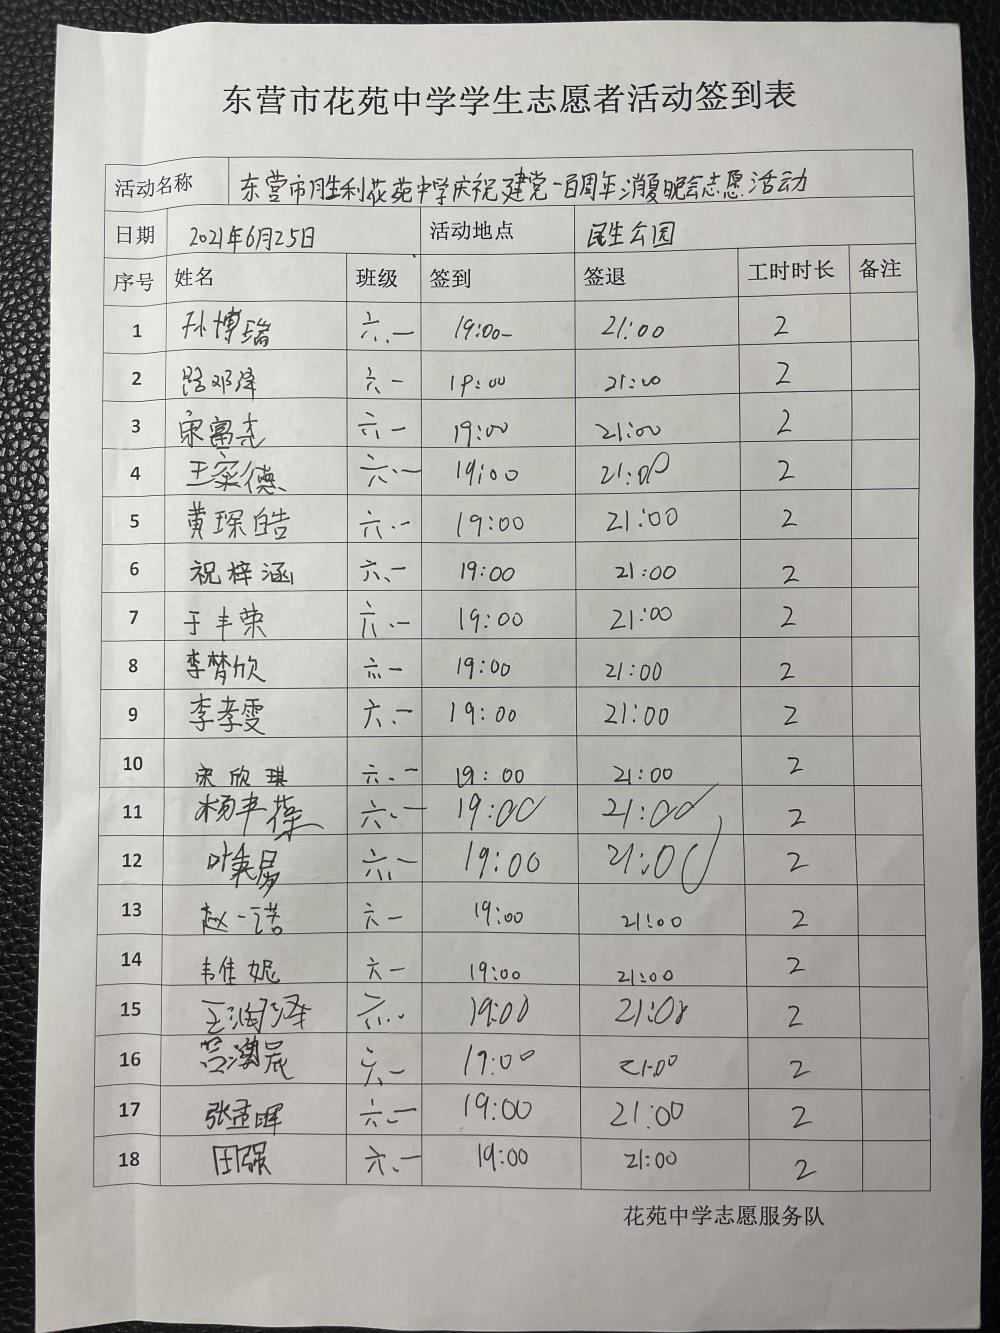 东营市花苑中学学生志愿者活动签到表
活动名称 东营市胜利花苑中学庆祝建党一百周年消夏晚会志愿活动
日期 2021年6月25日 活动地点 民生公园
序号 姓名 班级 签到 签退 工时时长 备注
1 孙博瑞 六.一 19:00 21:00 2
2 邓泽 六一 19:00 21:00 2
3 宋富杰 六一 19:00 21:00 2
4 王德 六.一 19:00 21:00 2
5 黄琛皓 六.一 19:00 21:00 2
6 祝梓涵 六、一 19:00 21:00 2
7 于丰荣 六.一 19:00 21:00 2
8 李梦欣 六一 19:00 21:00 2
9 李孝雯 六.一 19:00 21:00 2
10 宋欣琪 六.一 19:00 21:00 2
11 杨丰葆 六.一 19:00 21:00 2
12 叶 六.一 19:00 21:00 2
13 赵一诺 六一 19:00 21:00 2
14 韦佳妮 六一 19:00 21:00 2
15 王润泽 六.一 19:00 21:00 2
16 六一 19:00 21:00 2
17 张孟晖 六.一 19:00 21:00 2
18 田强 六.一 19:00 21:00 2
花苑中学志愿服务队